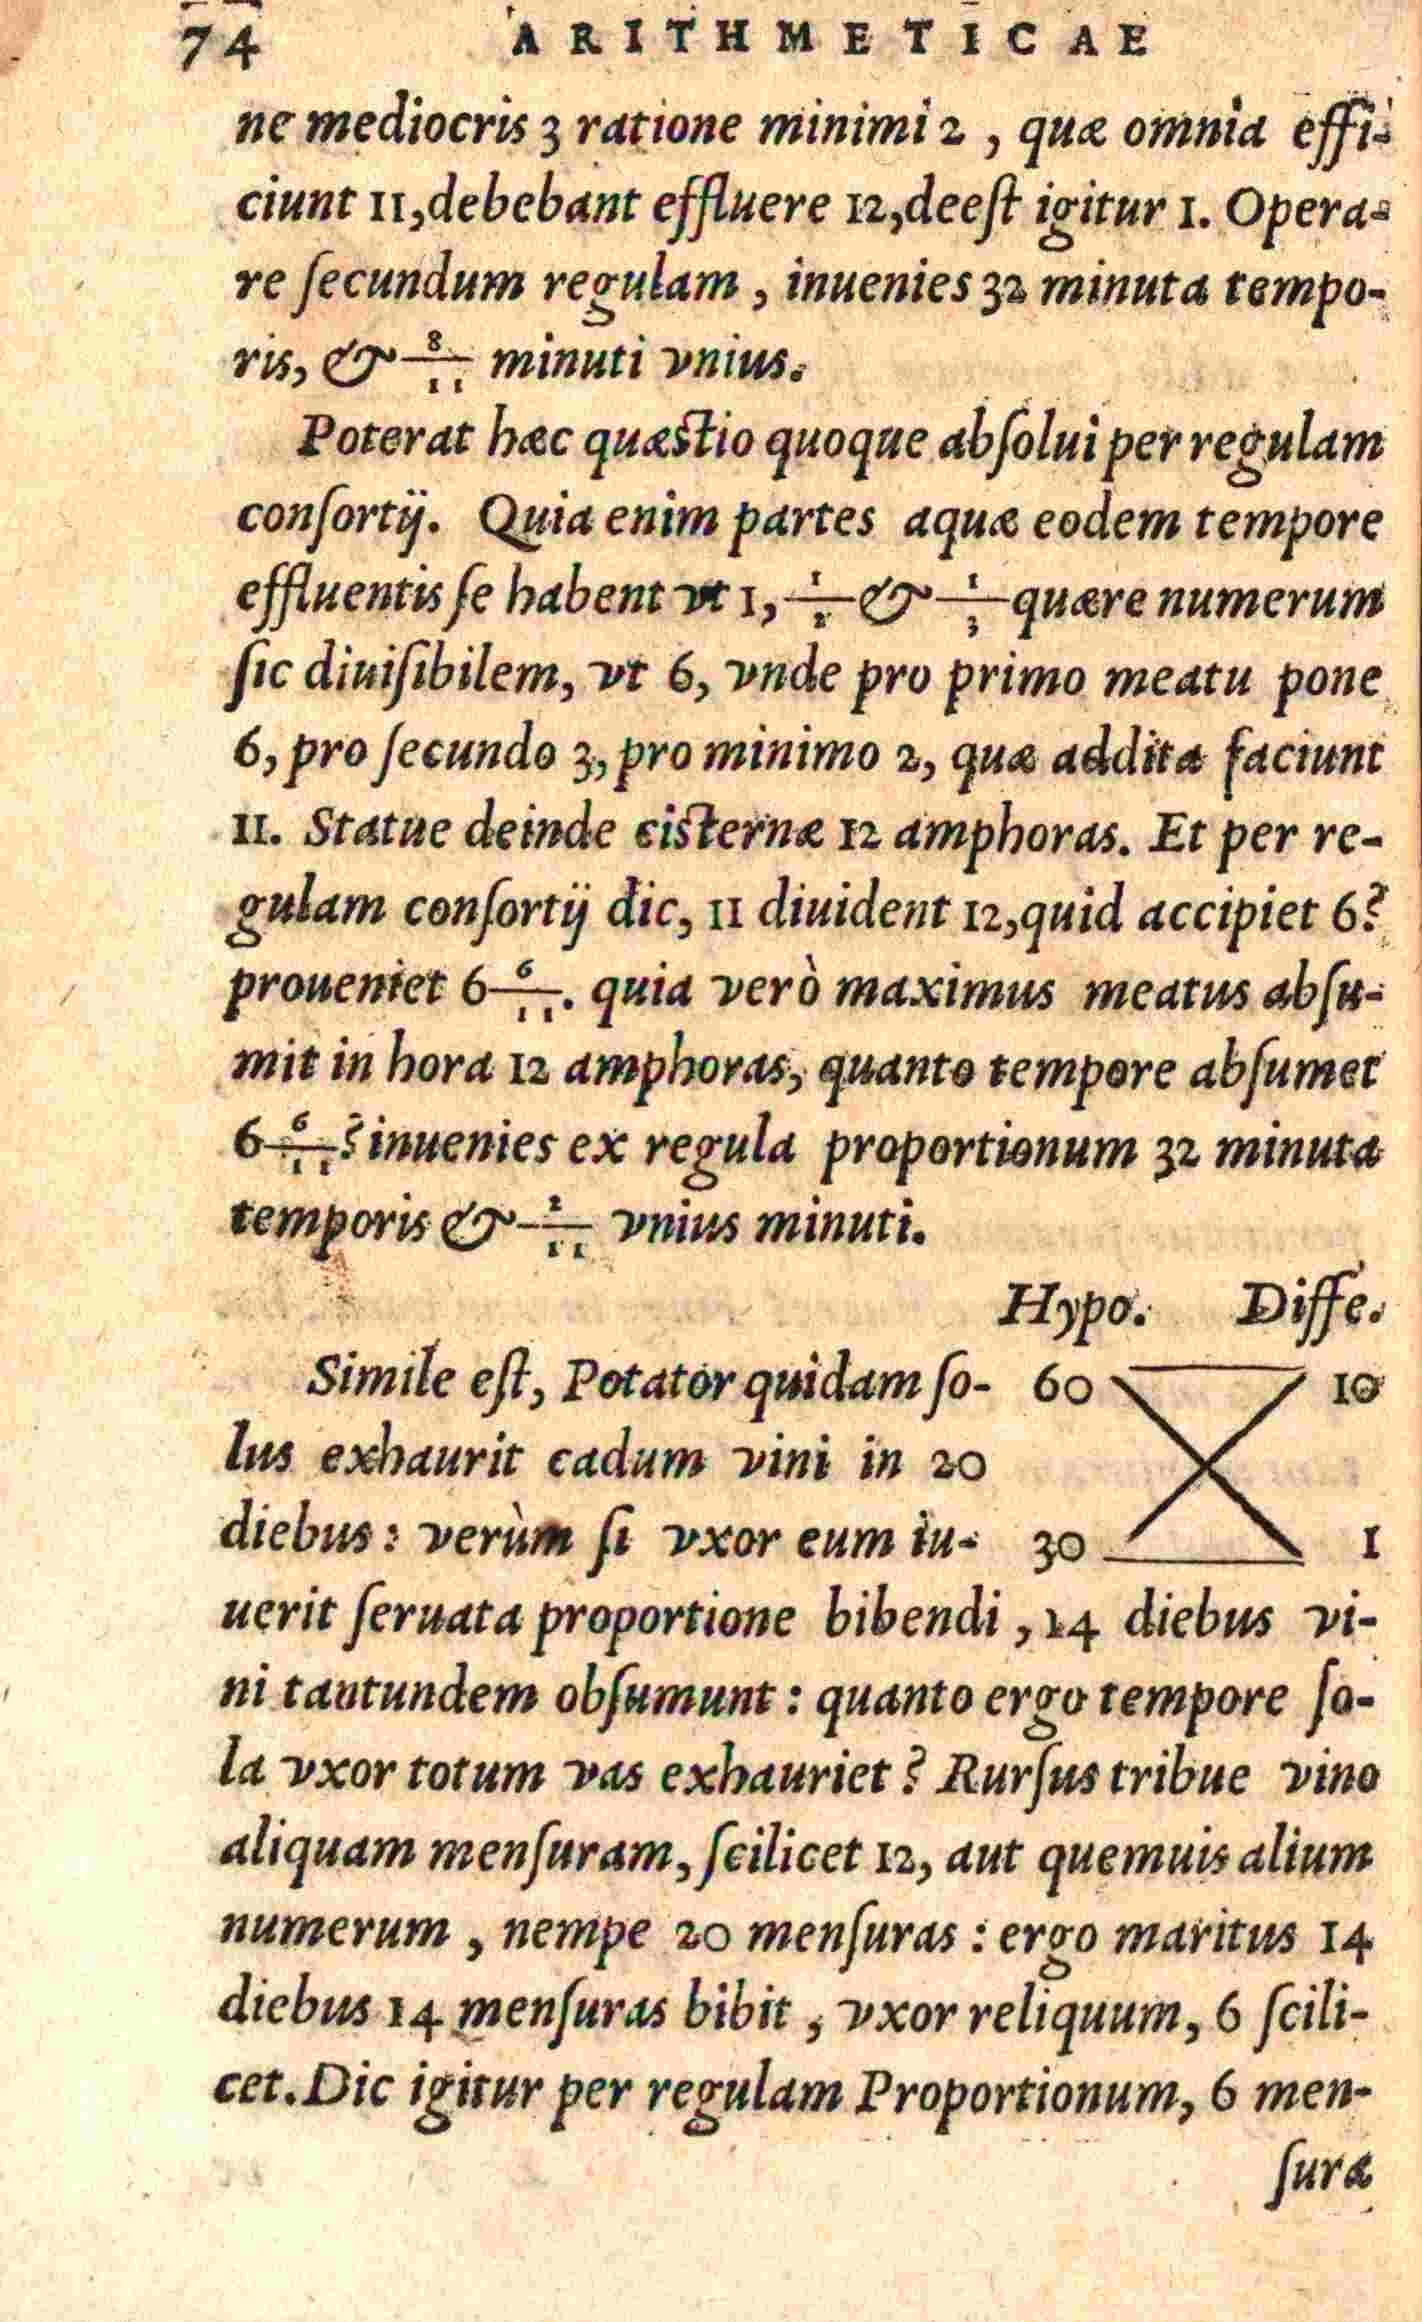 74 ARITHMETICAE
ne mediocris 3 ratione minimi 2 , quæ omnia effi-
ciunt 11,debebant effluere 12,deeſt igitur 1. Opera-
re ſecundum regulam , inuenies 32 minuta tempo-
ris, & 8/11 minuti vnius.
Poterat hæc quæstio quoque abſolui per regulam
conſortij. Quia enim partes aquæ eodem tempore
effluentis ſe habent vt 1, 1/2 & 1/3 quære numerum
ſic diuiſibilem, vt 6, vnde pro primo meatu pone
6, pro ſecundo 3, pro minimo 2, quæ addita faciunt
11. Statue deinde cisternæ 12 amphoras. Et per re-
gulam conſortij dic, 11 diuident 12,quid accipiet 6?
proueniet 6 6/11. quia verò maximus meatus abſu-
mit in hora 12 amphoras, quanto tempore abſumet
6 6/11? inuenies ex regula proportionum 32 minuta
temporis & 2/11 vnius minuti.
Hypo. Diffe.
Simile eſt, Potator quidam ſo- 60 10
lus exhaurit cadum vini in 20
diebus : verùm ſi vxor eum iu- 30 1
uerit ſeruata proportione bibendi , 14 diebus vi-
ni tautundem obſumunt : quanto ergo tempore ſo-
la vxor totum vas exhauriet ? Rurſus tribue vino
aliquam menſuram, ſcilicet 12, aut quemuis alium
numerum , nempe 20 menſuras : ergo maritus 14
diebus 14 menſuras bibit , vxor reliquum, 6 ſcili-
cet. Dic igitur per regulam Proportionum, 6 men-
ſuræ